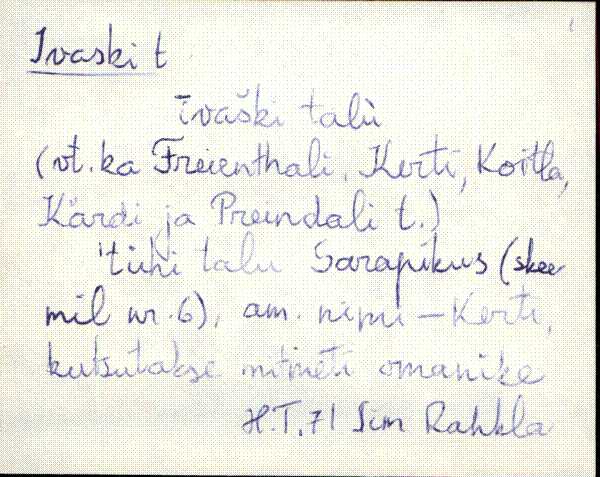 Ivaski t
īvaški talù
(vt. ka Freienthali, Kerti, Koitla,
Kärdi ja Preindali t.)
'tühi talu Sarapikus (skee
mil nr. 6), am. nimi – Kerti,
kutsutakse mitmeti omanike
H.T. 71 Sim Rahkla